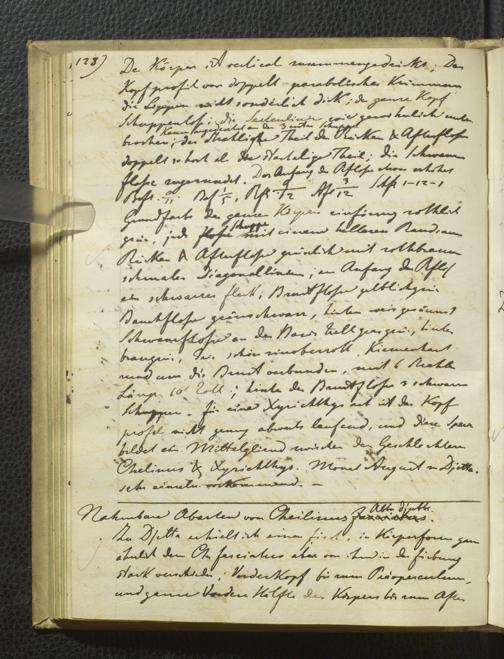 123)
Der Körper ist vertical zusammengedrückt; Das
Kopfprofil von doppelt-parabolischer Krümmung
die Lippen nicht sonderlich dick; der ganze Kopf
Schuppenlos; die Seitenlinie, wie gewöhnlich unter
brochen; der Strahlige Theil der Rücken & Afterflosse
doppelt so hoch als der Stachelige Theil; die Schwanz
flosse zugerundet. Der Anfang der Afterflosse
Grundfarbe des ganzen Körpers einförmig röthlich
grün, jede Schuppe mit einem helleren Rand; am
Rücken & Afterflosse grünlich mit rothbraun
schmalen Diagonallinien; am Anfang der Rfl
ein schwarzer Flek; Brustflosse gelblichgrün
Bauchflosse grünschwarz, hinten weiss gesäumt
Schwanzflosse an der Basis hellgrasgrün, hinten
braungrün, Iris schön zinoberroth. Kiemenhaut
rund um die Brust verbunden, mit 6 Strahlen
Länge 10 Zoll; hinter der Brustflosse 2 schwarze
Schuppen. für eine Xyrichthys art ist das Kopf
profil nicht genug abwärts laufend, und diese Species
bildet ein Mittelglied zwischen den Geschlechtern
Cheilinus & Xyrichthys. Monat August in Djetta
sehr einzeln vorkommend. —
Nahmbare Abarten von Cheilinus fasciatus.
Zu Djetta erhielt ich einen Fisch, in Körperform ganz
ähnlich dem Ch fasciatus aber von ihm in der Färbung
stark verschieden; Vorderkopf bis zum Präoperculum,
und ganze Vordere Hälfte des Körpers bis zum After